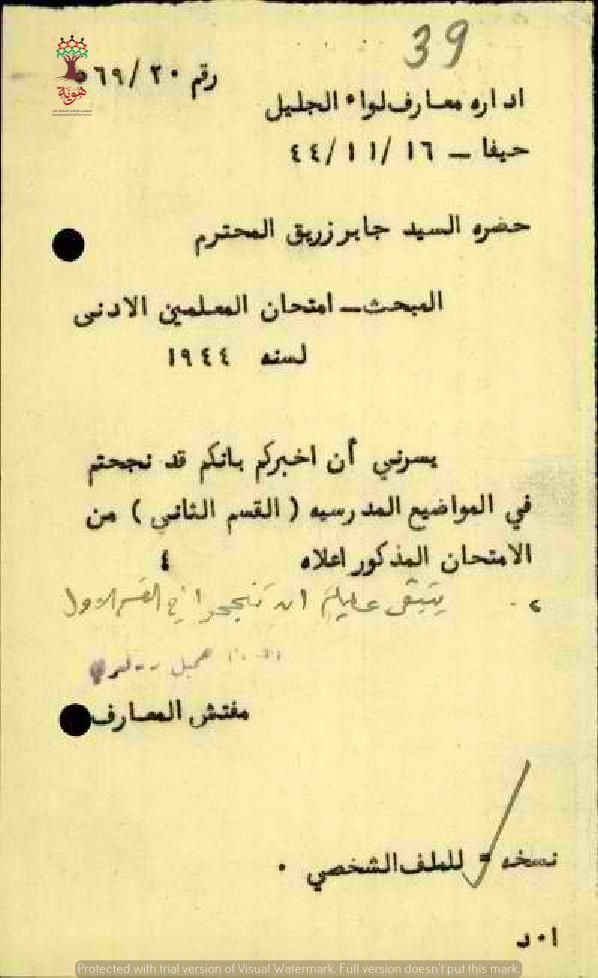 39
رقم ٥٦٩/٢٠
هوية
اداره معارف لواء الجليل
حيفا – ٤٤/١١/١٦
حضره السيد جابر زريق المحترم
المبحث – امتحان المعلمين الادنى
لسنه ١٩٤٤
يسرني أن اخبركم بانكم قد نجحتم
في المواضيع المدرسيه ( القسم الثاني ) من
الامتحان المذكور اعلاه
٢. يتبقى عليكم ان تنجحوا في القسم الاول
جميل
مفتش المعارف
نسخه = للملف الشخصي .
ا٠د
Protected with trial version of Visual Watermark. Full version doesn't put this mark.